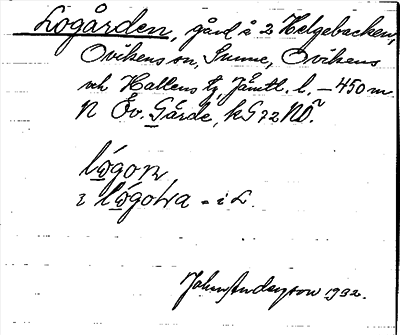 Logården, gård å 2 Helgebacken,
Ovikens sn, Sunne, Ovikens
och Hallens tg, Jämtl. l. – 450 m
N Öv. Gårde, kG 72 NO.
lógoɴ
i lógoʜa - i L.
John Anderson 1932.